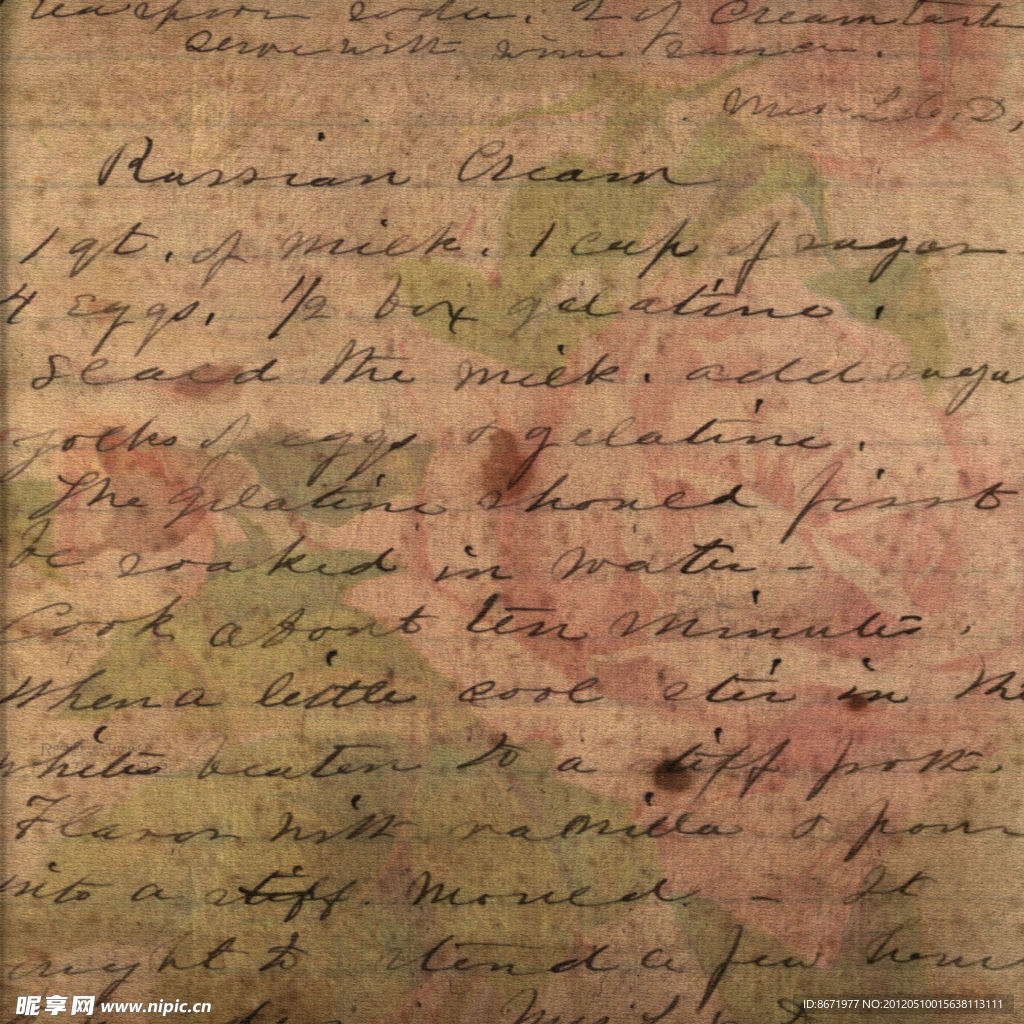 teaspoon soda. 2 of Cream tart
Serve with wine sauce.
Miss L. C. D.
Russian Cream
1 qt. of milk. 1 cup of sugar
4 Eggs, 1/2 box gelatine.
Scald the milk. add suga
yolks of eggs & gelatine.
The gelatine should first
be soaked in water –
Cook about ten minutes.
When a little cool stir in the
whites beaten to a stiff froth.
Flavor with vanilla & pour
into a stiff. Mould. – It
ought to stand a few hours
Miss L. D
昵享网 www.nipic.cn
ID:8671977 NO:20120510015638113111